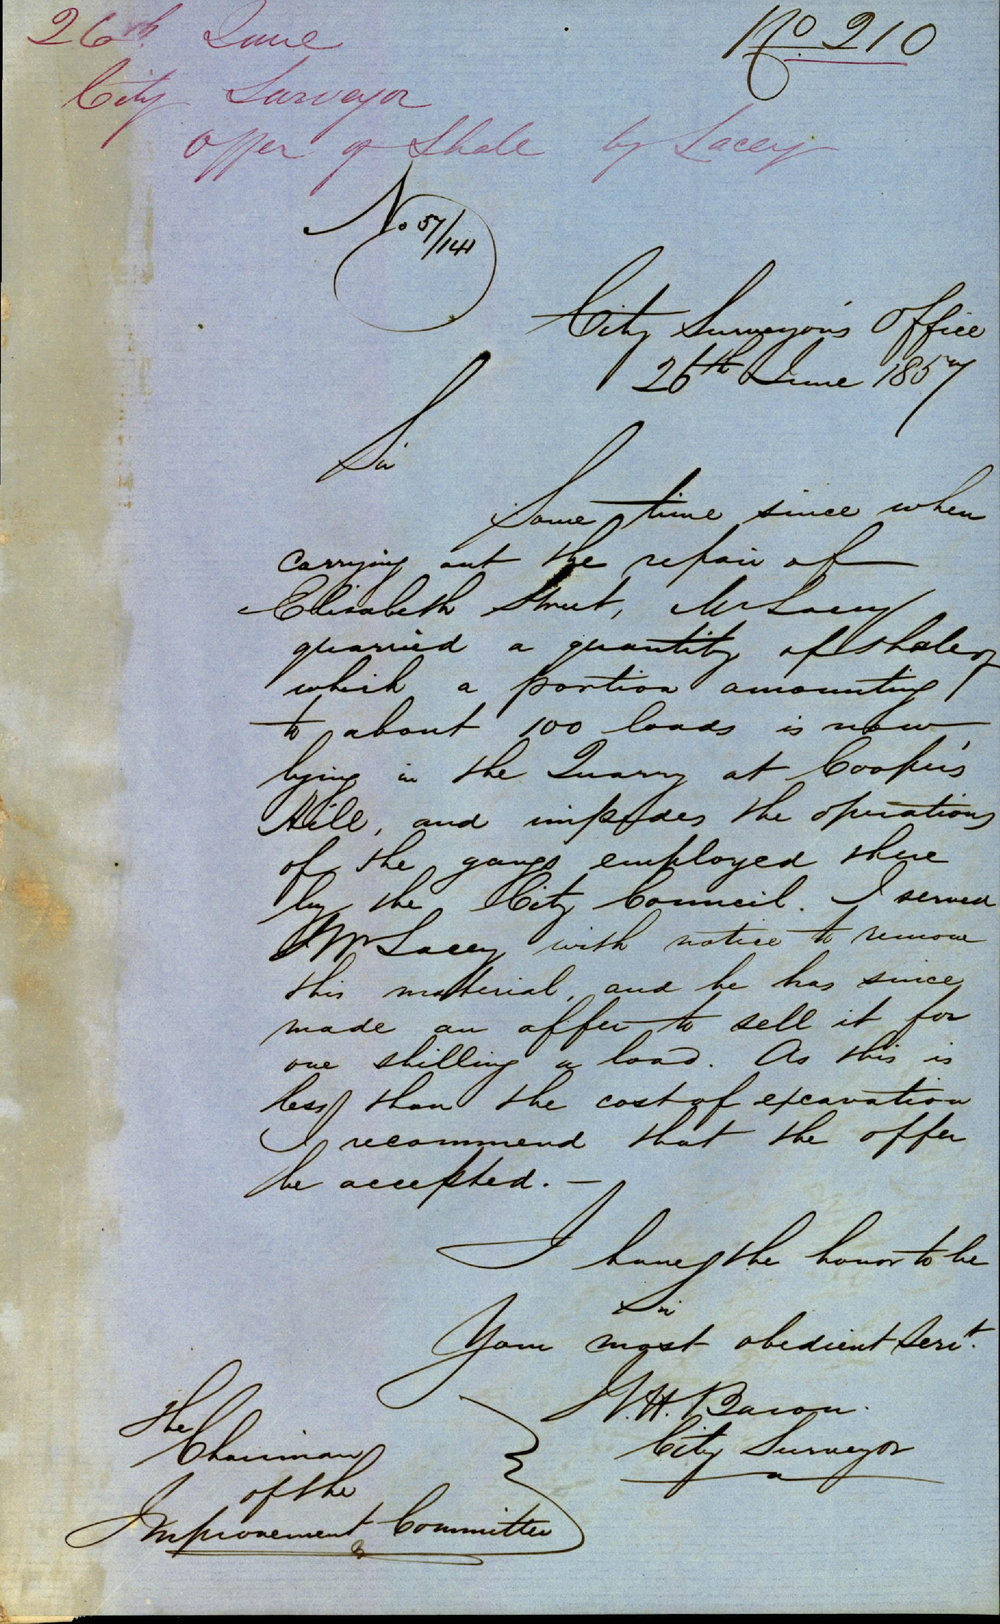 26th June
No 210
City Surveyor
Offer of Shale by Lacey
No 57/141
City Surveyor's Office
26th June 1857
Sir
Some time since when
carrying out the repair of
Elizabeth Street, Mr Lacey
quarried a quantity of shale of
which a portion amounting
to about 100 loads is now
lying in the Quarry at Cooper's
Hill, and impedes the operations
of the gangs employed there
by the City Council. I served
Mr Lacey with notice to remove
this material, and he has since
made an offer to sell it for
one shilling a load. As this is
less than the cost of excavation
I recommend that the offer
be accepted. —
I have the honor to be
Sir
Your most obedient Servt.
City Surveyor
The
Chairman
of the
Improvement Committee